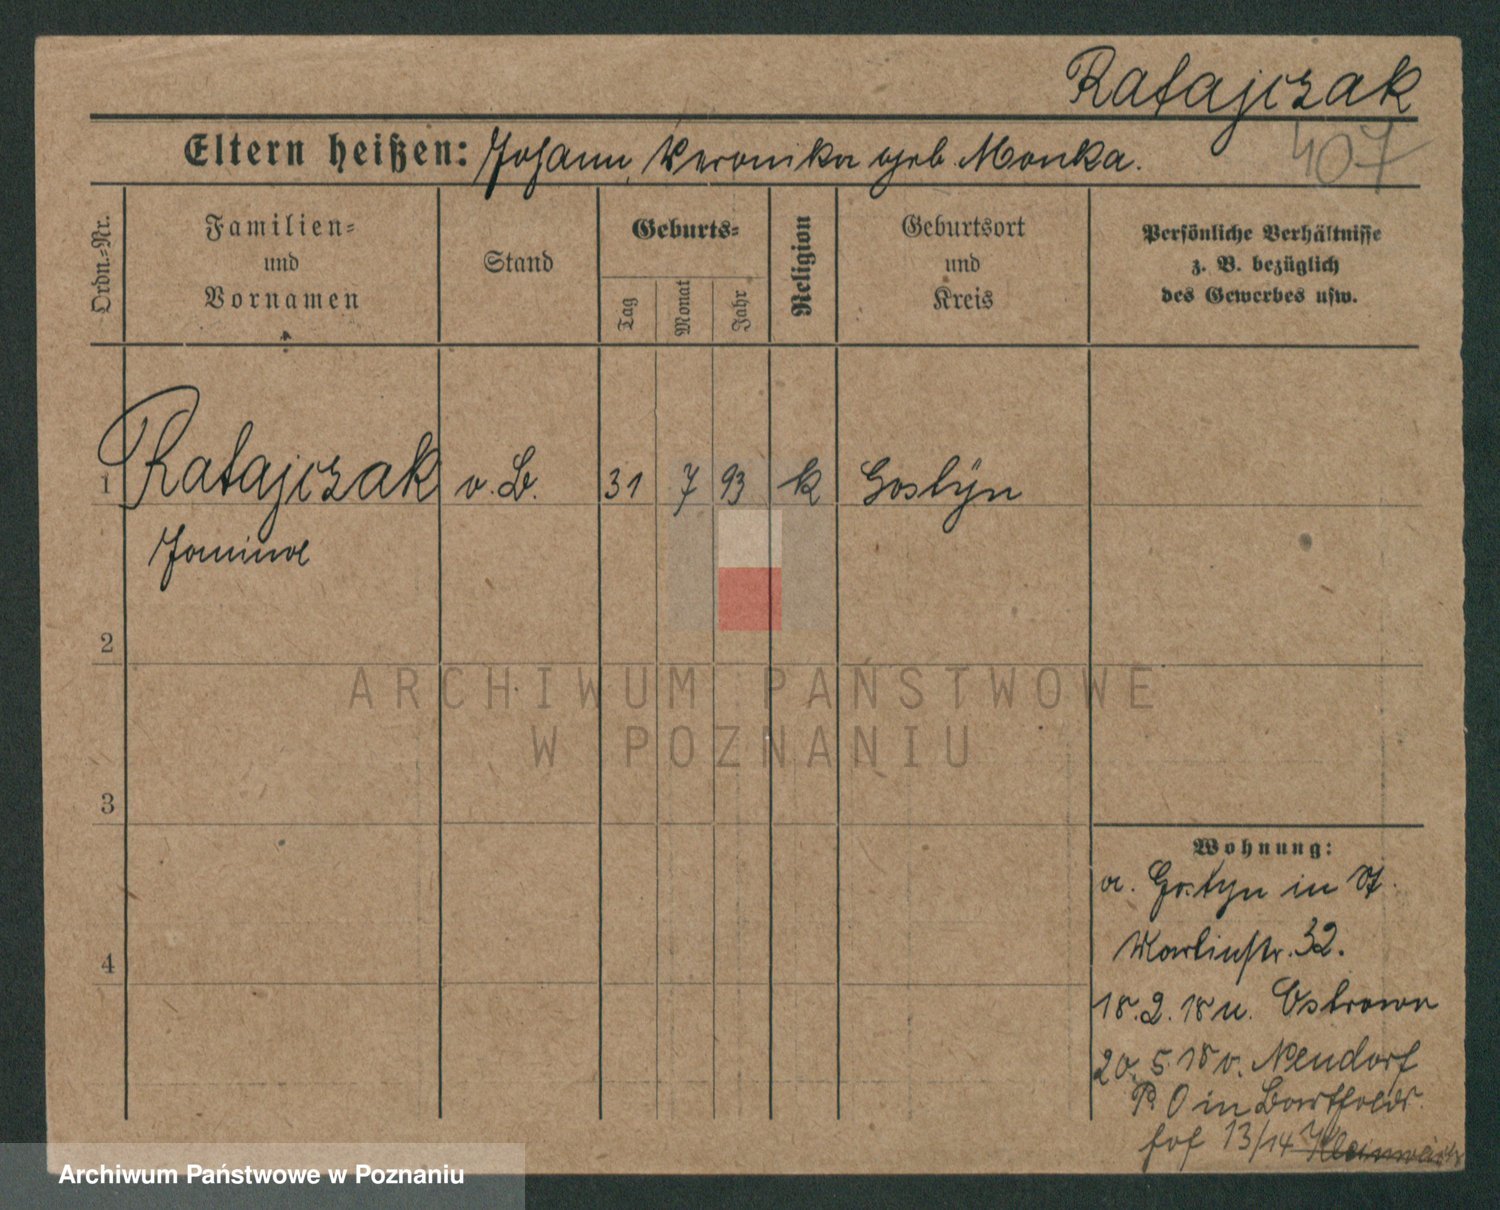 Ratajczak
407
Eltern heißen: Johann, Veronika geb. Monka.
Ordn.-Nr.
Familien- und Vornamen
Stand
Geburts-
Tag
Monat
Jahr
Religion
Geburtsort und Kreis
Persönliche Verhältnisse z. B. bezüglich des Gewerbes usw.
1 Ratajczak v. B. 31 7 93 k Gostÿn
2
3
4
Wohnung:
a. Gostyn in
32.
18.2.18 n. Ostrowo
20.5.18 v. Neudorf
P. O in
13/14
ARCHIWUM PAŃSTWOWE
W POZNANIU
Archiwum Państwowe w Poznaniu